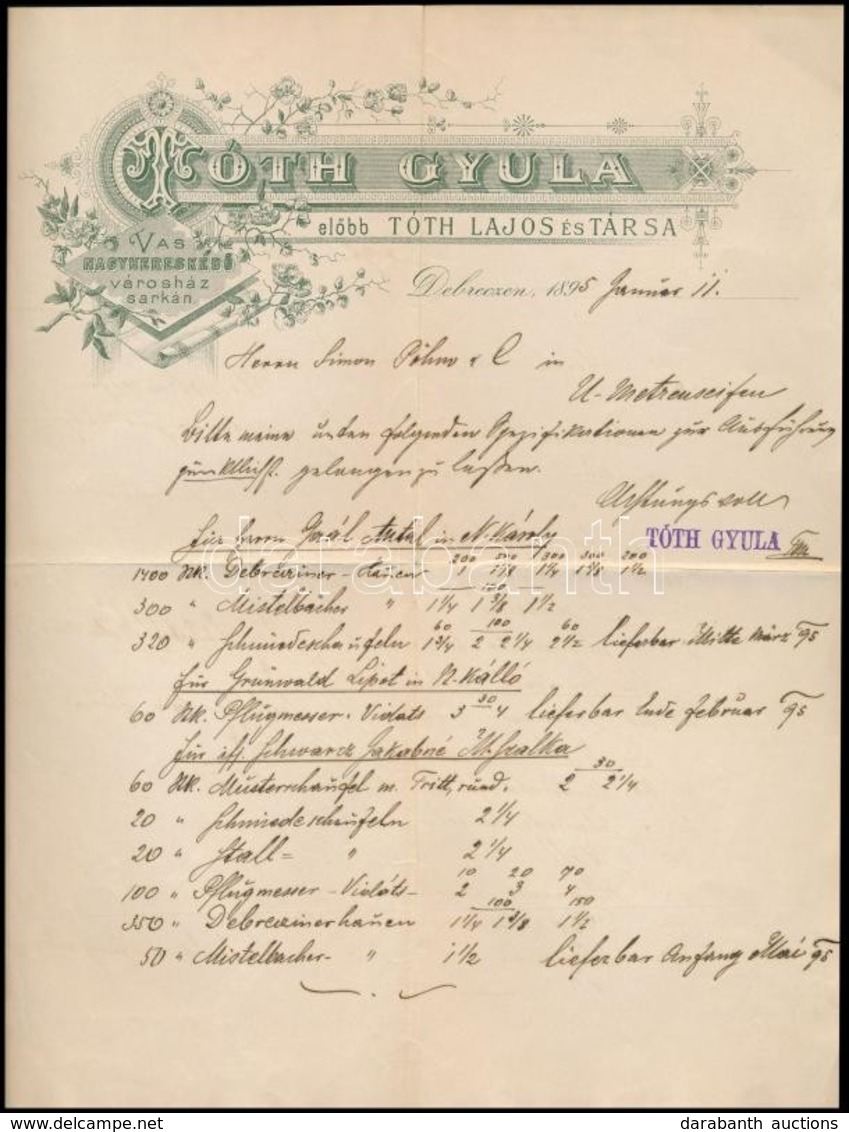 TÓTH GYULA
előbb TÓTH LAJOS és TÁRSA
VAS
NAGYKERESKEDŐ
városház
sarkán.
Debreczen, 1895 Januar 11.
Herrn Simon & C in
U-Metzenseifen
Bitte meine unten folgenden Spezifikationen zur Ausführung
pünktlichst. gelangen zu laßen.
Achtungsvoll
TÓTH GYULA
für Herrn Gaál Antal in N. Károly
200 300 300 200
1400 Stk. Debrecziner-hauen 1 1 1/8 1 1/4 1 3/8 1 1/2
300 " Mistelbacher " 1 1/4 1 3/8 1 1/2
60 100 60
320 " Schmiedeschaufeln 1 3/4 2 2 1/4 2 1/2 lieferbar Mitte März 95
für Grünwald Lipot in N. Kálló
30
60 Stk. Pflugmesser-Vidats 3 4 lieferbar Ende februar 95
für Schwarcz Jakabné M. Szalka
30
60 Stk. Musterschaufel m. Tritt, rund. 2 2 1/4
20 " Schmiedeschaufeln 2 1/4
20 " Stall= " 2 1/4
10 20 70
100 " Pflugmesser-Vidats- 2 3 4
100 150
350 " Debreczinerhauen 1 1/4 1 3/8 1 1/2
50 " Mistelbacher- " 1 1/2 lieferbar Anfang Mai 95
darabanth
www.darabanth.com
darabanth auctions